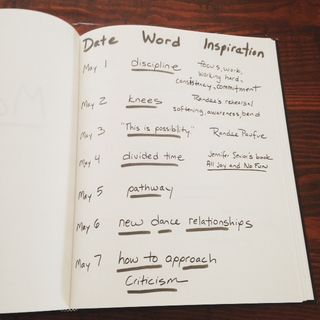 Date Word Inspiration
May 1 discipline focus, work,
working hard,
consistency, commitment
May 2 knees Randee's rehearsal
softening, awareness, bend
May 3 "This is possibility" Randee Paufve
May 4 divided time Jennifer Senior's book
All Joy and No Fun
May 5 pathway
May 6 new dance relationships
May 7 how to approach
Criticism